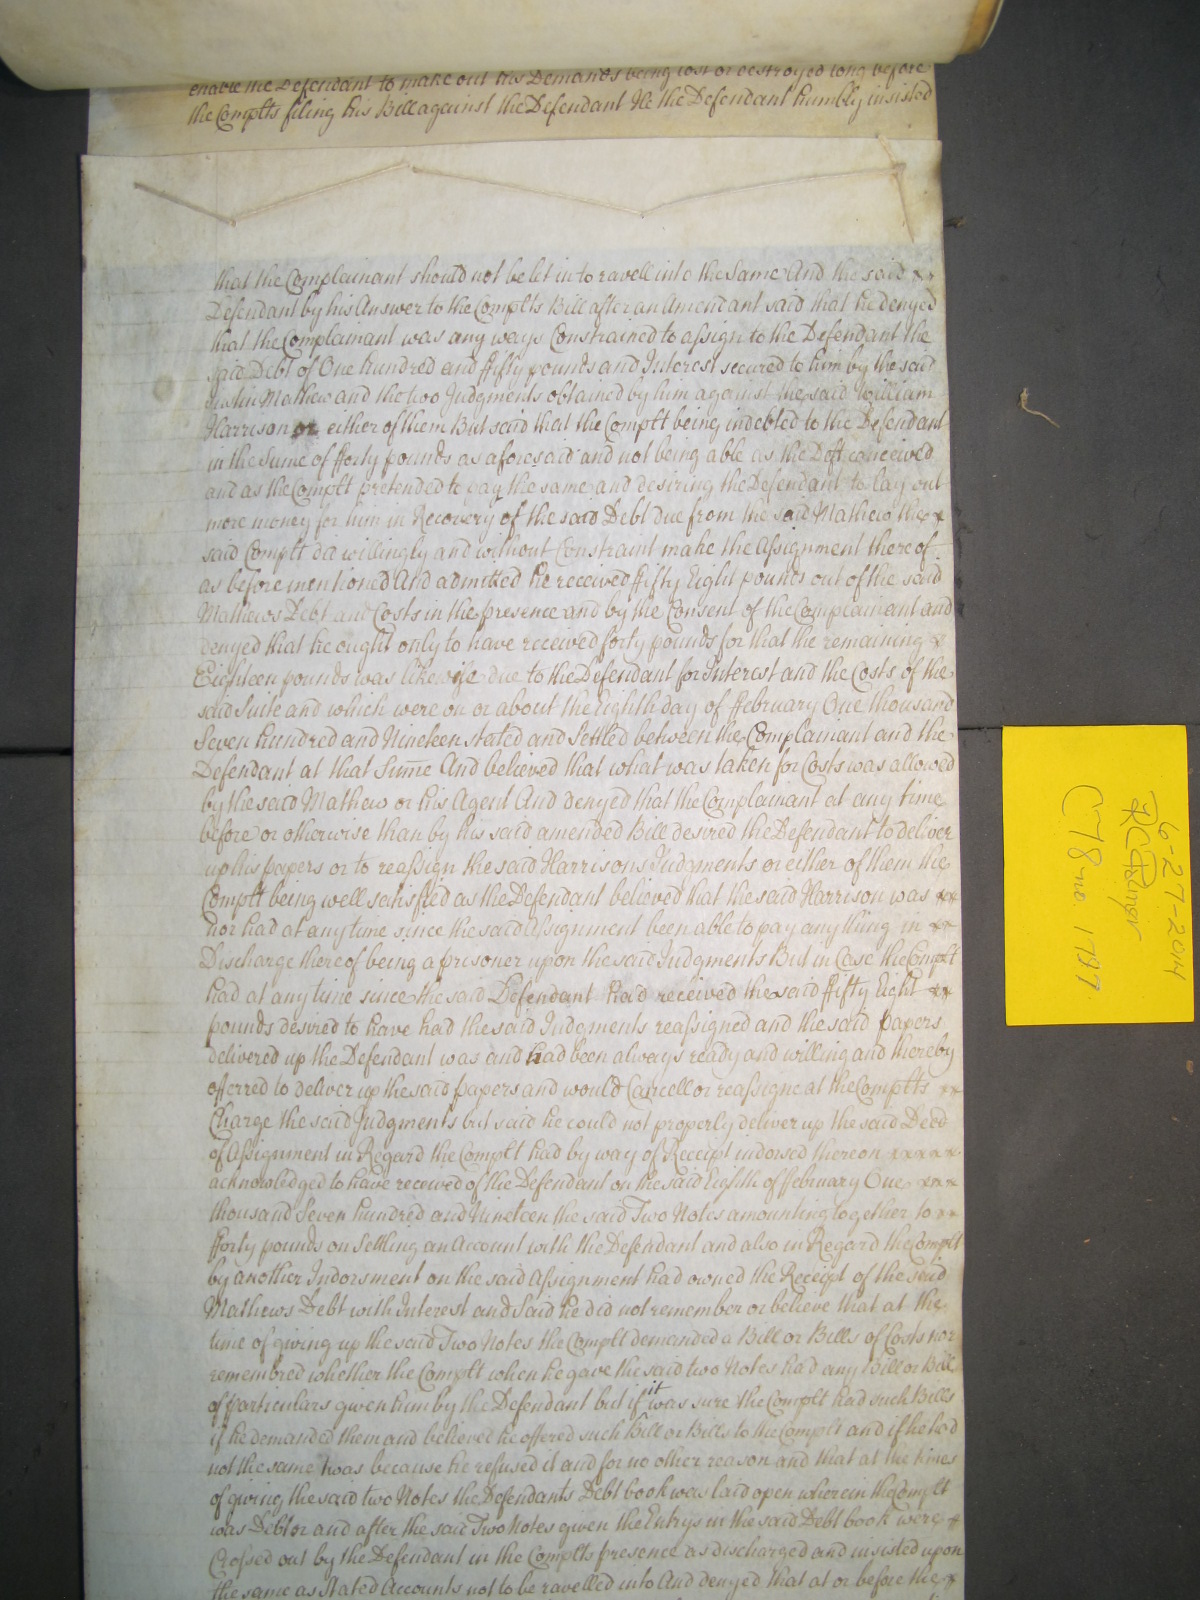 enable the Defendant to make out his Demands being lost or destroyed long before
the Complts filing his Bill against the Defendant He the Defendant humbly insisted
that the Complainant should not be let in to ravell into the Same And the said
Defendant by his Answer to the Complts Bill after an Amendant said that he denyed
that the Complainant was any ways Constrained to assign to the Defendant the
said Debt of One hundred and fifty pounds and Interest secured to him by the said
Mathew and the two Judgments obtained by him against the said William
Harrison or either of them But said that the Complt being indebted to the Defendant
in the Sume of fforty pounds as aforesaid and not being able as the Deft conceived
and as the Complt pretended to pay the same and desiring the Defendant to lay out
more money for him in Recovery of the said Debt due from the said Mathew the
said Complt did willingly and without Constraint make the Assignment thereof
as before mentioned And admitted he received ffifty Eight pounds out of the said
Mathews Debt and Costs in the presence and by the Consent of the Complainant and
denyed that he ought only to have received forty pounds for that the remaining
Eighteen pounds was likewise due to the Defendant for Interest and the Costs of the
said Suite and which were on or about the Eighth day of ffebruary One thousand
Seven hundred and Nineteen stated and Settled between the Complainant and the
Defendant at that Sume And believed that what was taken for Costs was allowed
by the said Mathew or his Agent And denyed that the Complainant at any time
before or otherwise than by his said amended Bill desired the Defendant to deliver
up his papers or to reassign the said Harrisons Judgments or either of them the
Complt being well satisfied as the Defendant believed that the said Harrison was
nor had at any time since the said Assignment been able to pay any thing in
Discharge thereof being a prisoner upon the said Judgments But in Case the Complt
had at any time since the said Defendant had received the said ffifty Eight
pounds desired to have had the said Judgments reassigned and the said papers
delivered up the Defendant was and had been always ready and willing and thereby
offerred to deliver up the said papers and would Cancell or reassigne at the Complts
Charge the said Judgments but said he could not properly deliver up the said Deed
of Assignment in Regard the Complt had by way of Receipt indorsed thereon
acknowledged to have received of the Defendant on the said Eighth of ffebruary One
thousand Seven hundred and Nineteen the said Two Notes amounting together to
fforty pounds on Settling an Account with the Defendant and also in Regard the Complt
by another Indorsment on the said Assignment had owned the Receipt of the said
Mathews Debt with Interest and Said he did not remember or believe that at the
time of giving up the said Two Notes the Complt demanded a Bill or Bills of Costs nor
remembred whether the Complt when he gave the said two Notes had any Bill or Bills
of particulars given him by the Defendant but if it was sure the Complt had such Bills
if he demanded them and believed he offered such Bill or Bills to the Complt and if he had
not the same twas because he refused it and for no other reason and that at the times
of giving the said two Notes the Defendants Debt book was laid open wherein the Complt
was Debtor and after the said Two Notes given the Entrys in the said Debt book were
Crossed out by the Defendant in the Complts presence as discharged and insisted upon
the same as Stated Accounts not to be ravelled into And denyed that at or before the
6-27-2014
C78 1797